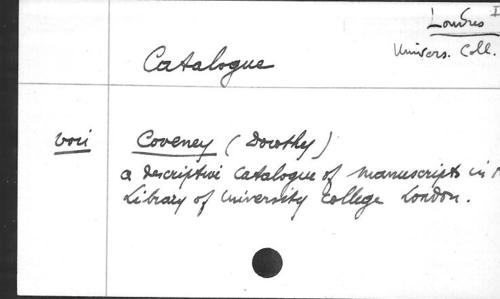 Londres I
Univers. Coll.
Catalogue
voir Coveney (Dorothy)
a descriptive catalogue of manuscripts in
Library of University College London.